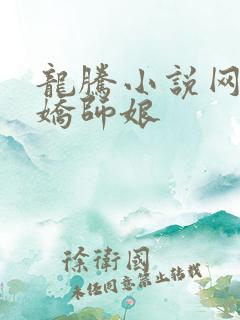 龍騰小説网
嬌師娘
徐衛國
未经同意禁止转载